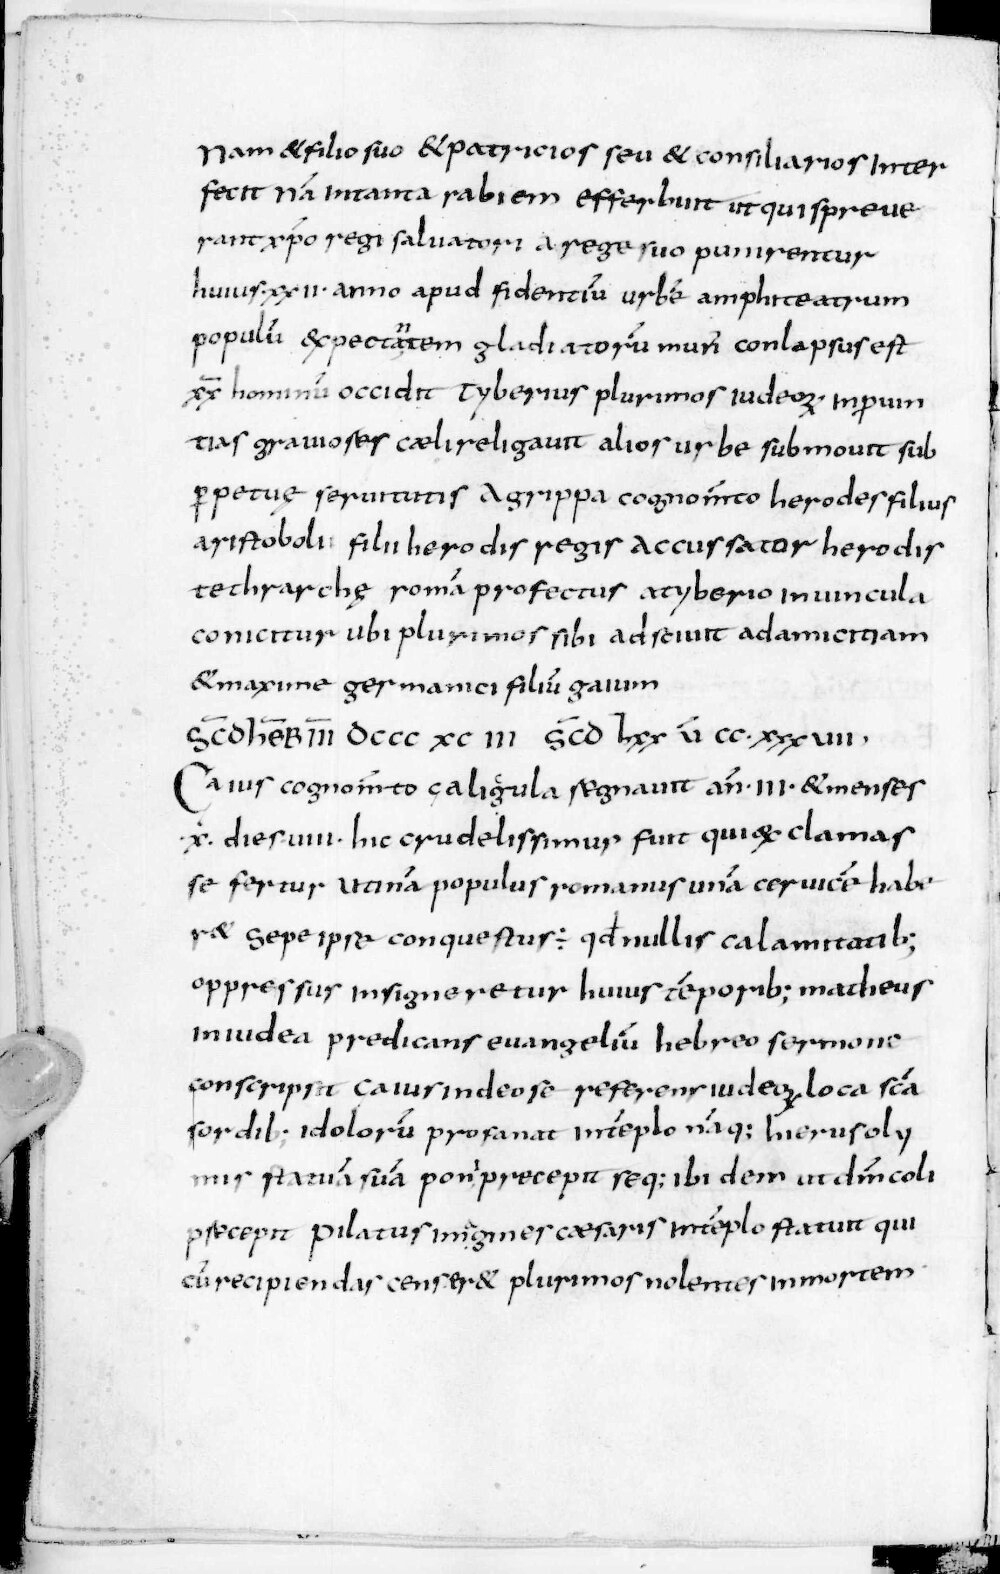 nam & filio suo & patricios seu & consiliarios inter
fecit nā in tanta rabiem efferbuit ut qui spreue
rant xp̄o regi saluatori a rege suo punirentur
huius · xx ii · anno apud fidentiū urbē amphiteatrum
populū expectantem gladiatorū mun̄ conlapsus est
x̄x̄ hominū occidit tyberius plurimos iudeoꝝ · in ꝓuin
tias grauiores cæli religauit alios urbe submouit sub
ꝑpetuę seruitutis agrippa cognom̄to herodes filius
aristoboli filii herodis regis accussator herodis
tethrarchę romā profectus a tyberio in uincula
conicitur ubi plurimos sibi adsciuit ad amicitiam
& maxime germanici filiū gaium
Sc̄d hēƀ iiī dccc xc iii sc̄d lxx v̄ cc · xxx viii ·
Caius cognom̄to caligula regnauit an̄ · iii · & menses
· x · dies · viii · hic crudelissimur fuit qui exclamas
se fertur utinā populus romanus unā ceruicē habe
r& sepe ipse conquestus : qđ nullis calamitatib;
oppressus insigneretur huius tēporib; matheus
in iudea predicans euangeliū hebreo sermone
conscripsit caius in deos e referens iudeoꝝ loca sc̄a
sordib; idolorū profanat in tēplo nāq; hierusoly
mis statuā suā pon̄ precepit seq; ibi dem ut dm̄ coli
precepit pilatus imagines cæsaris in tēplo statuit qui
cū recipiendas censer& plurimos nolentes in mortem